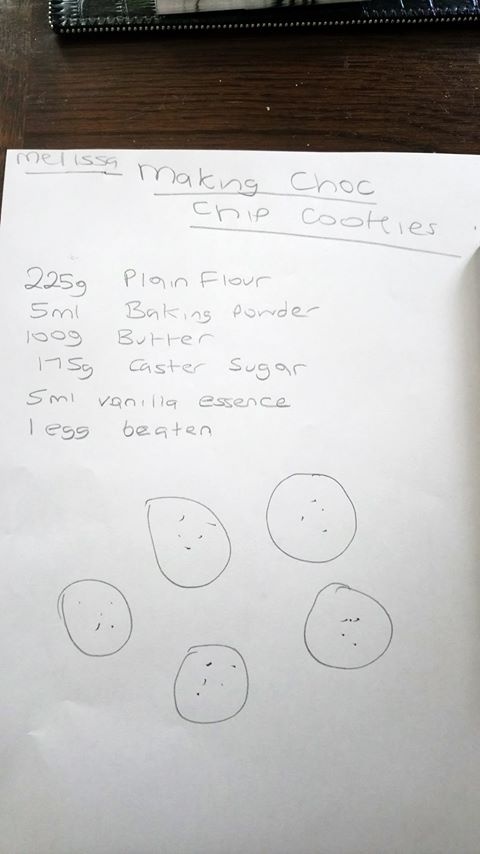 melissa
Making Choc
Chip Cookies
225g Plain Flour
5ml Baking Powder
100g Butter
175g Caster Sugar
5ml vanilla essence
1 egg beaten